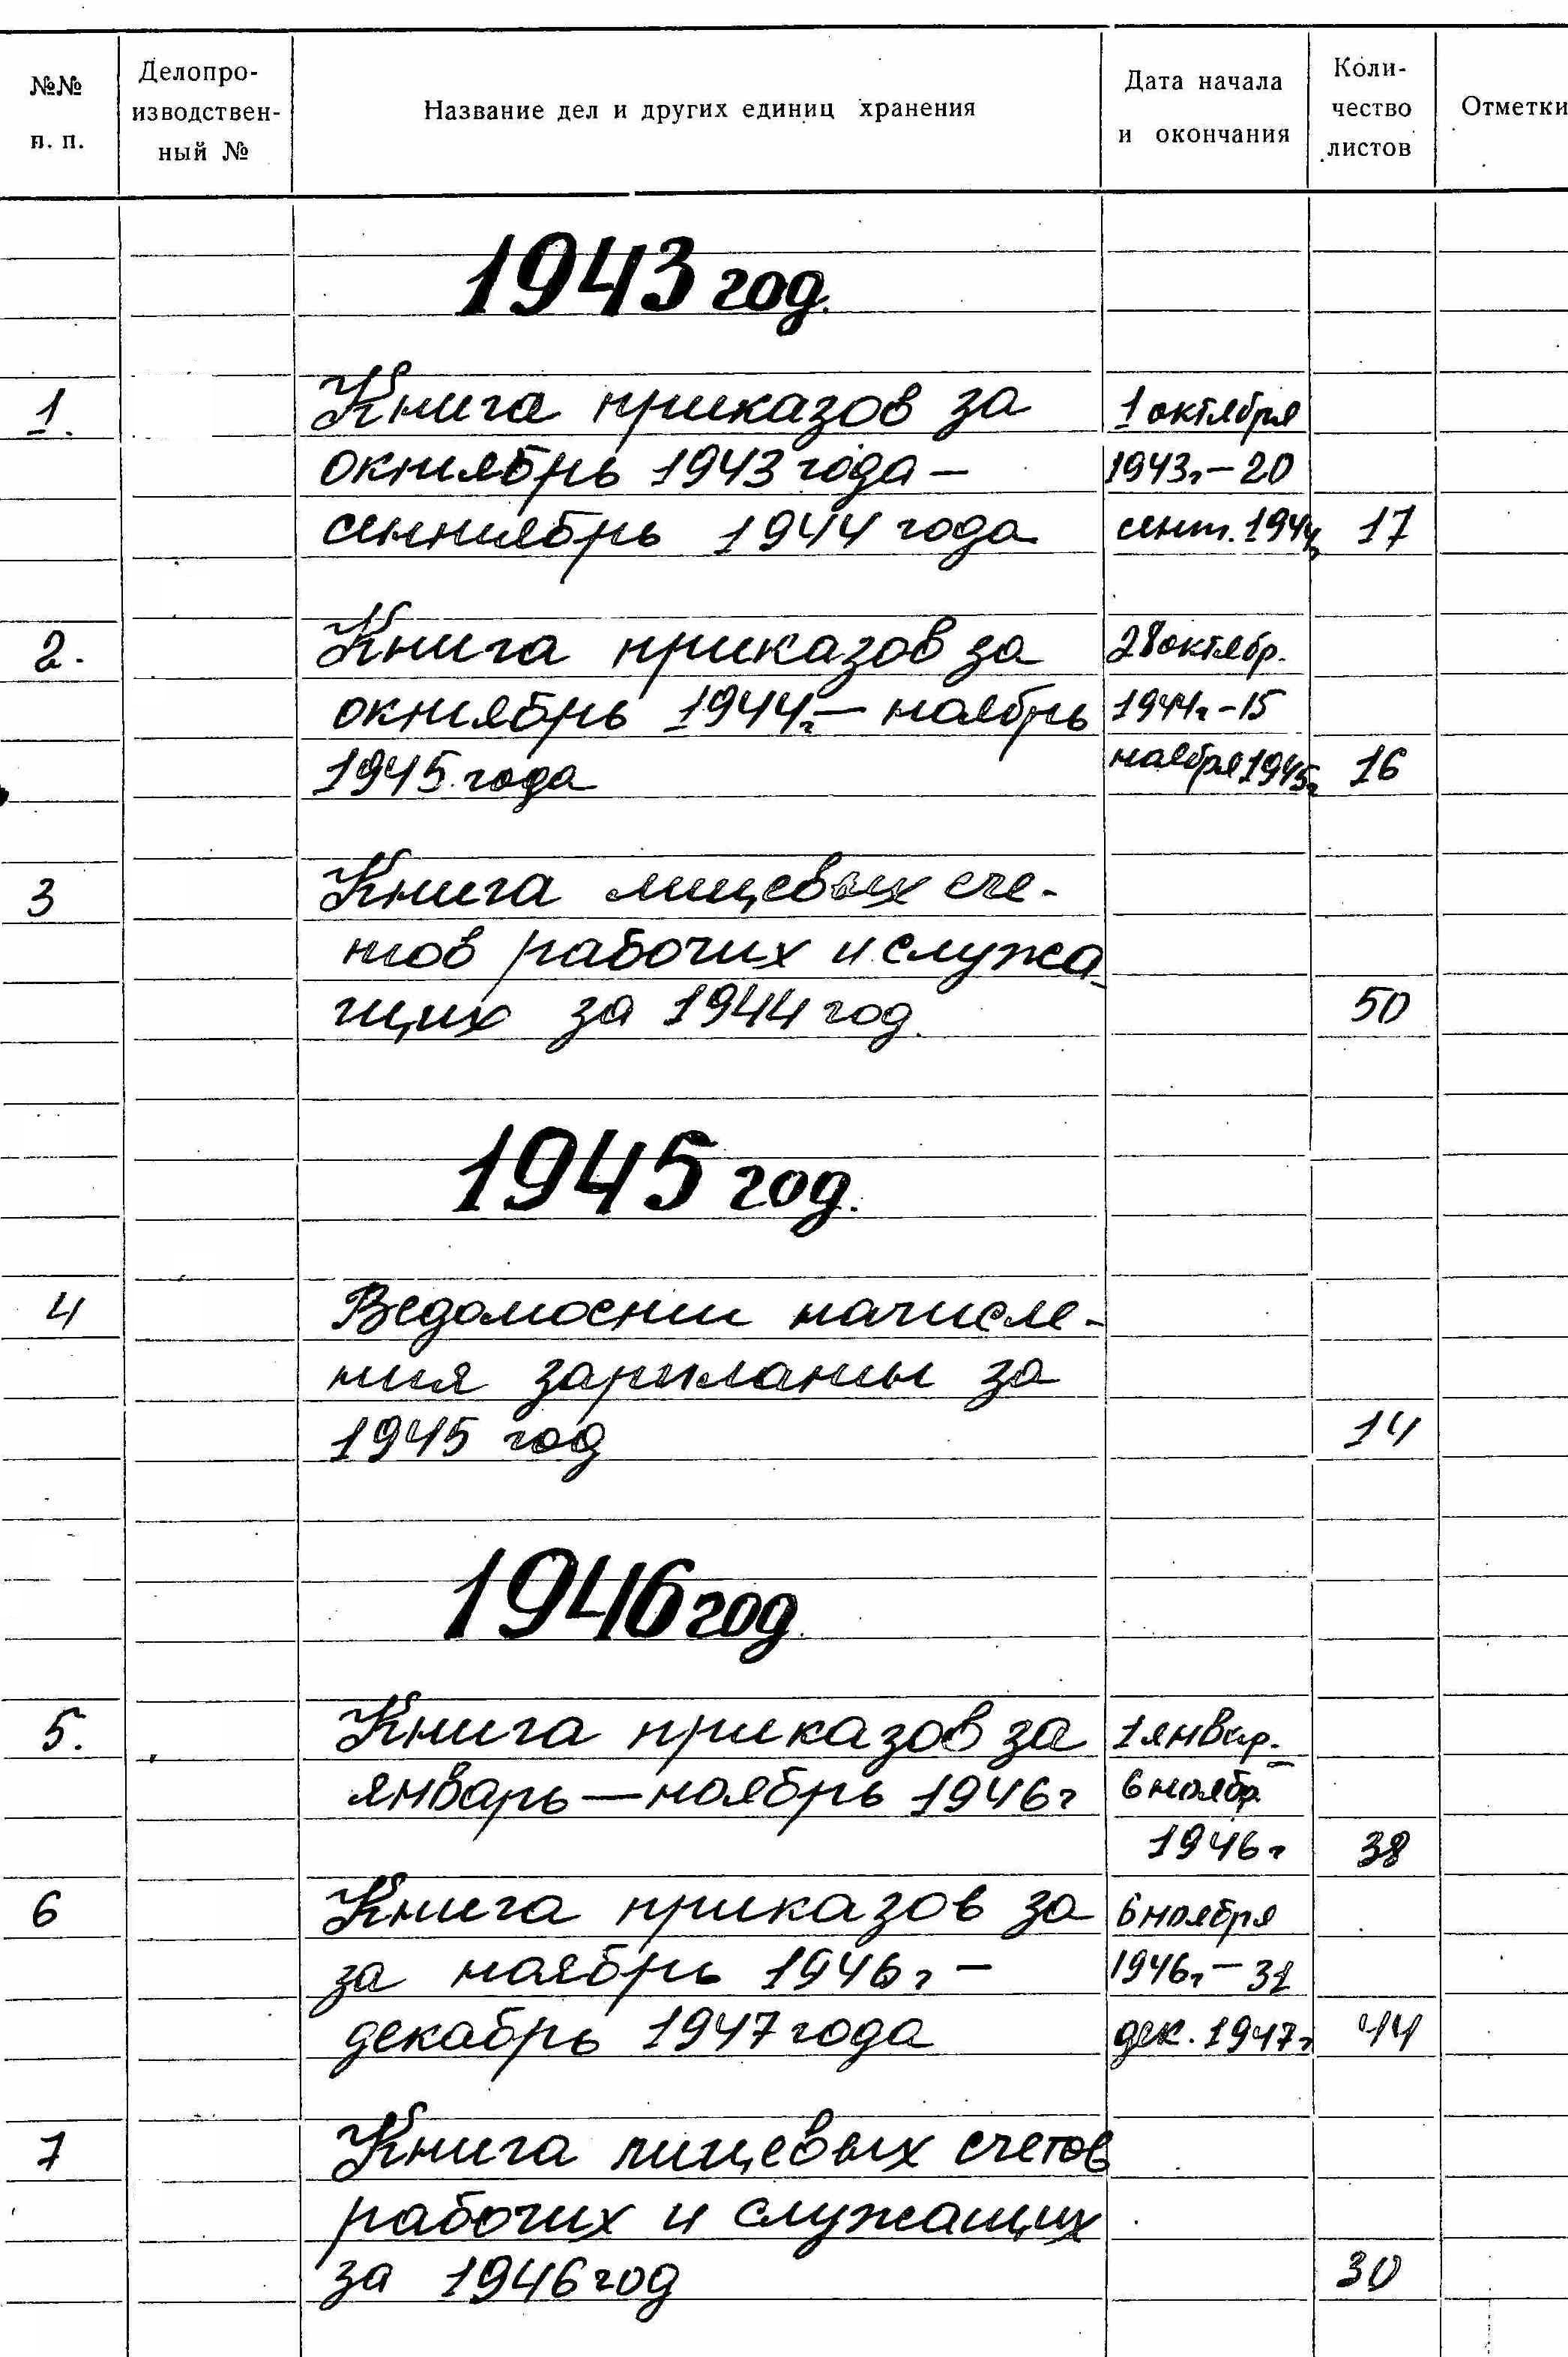 №№ п. п.
Делопро-
изводствен-
ный №
Название дел и других единиц хранения
Дата начала
и окончания
Коли-
чество
листов
Отметки
1943 год.
1. Книга приказов за 1 октября
октябрь 1943 года – 1943г – 20
сентябрь 1944 года сент. 1944г 17
2. Книга приказов за 28 октябр.
октябрь 1944г. – ноябрь 1944г – 15
1945 года ноября 1945г 16
3 Книга лицевых сче-
тов рабочих и служа-
щих за 1944 год. 50
1945 год.
4 Ведомости начисле-
ния зарплаты за
1945 год 14
1946 год
5. Книга приказов за 1 январ. –
январь – ноябрь 1946г 6 ноябр.
1946г 38
6 Книга приказов за 6 ноября
за ноябрь 1946г – 1946г – 31
декабрь 1947 года дек. 1947г 44
7 Книга лицевых счетов
рабочих и служащих
за 1946 год 30